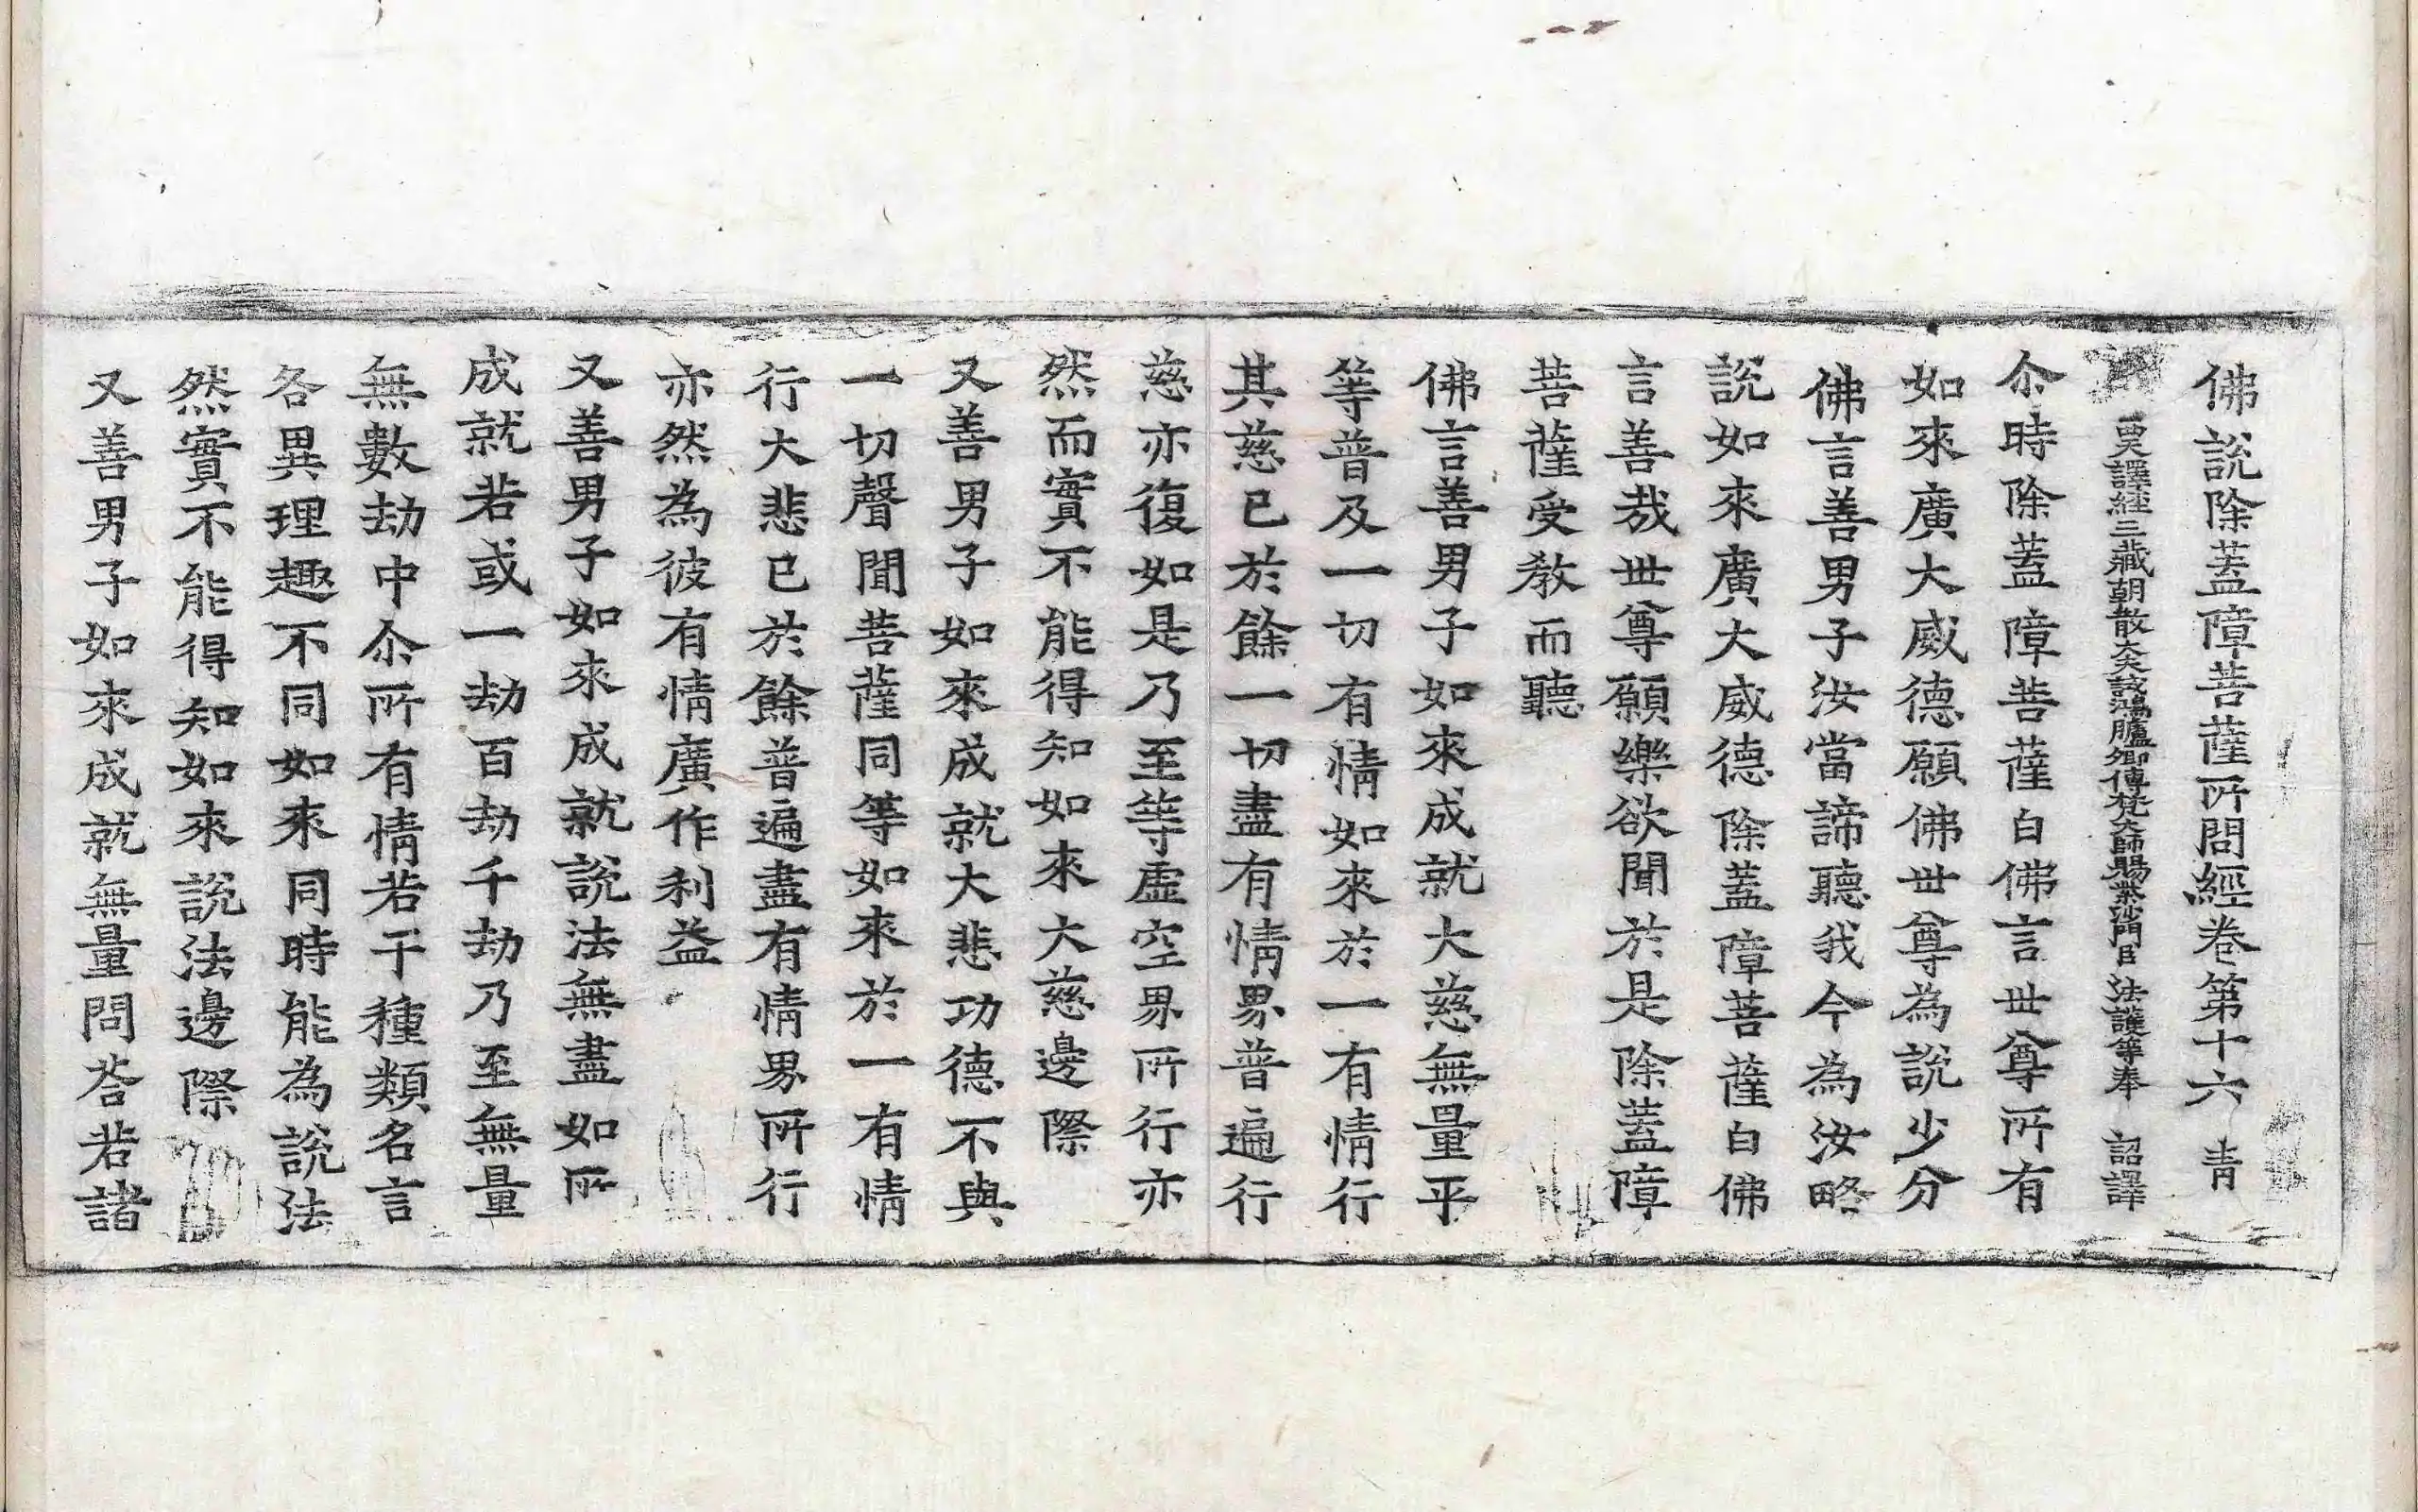 佛說除蓋障菩薩所問經卷第十六 青
西天譯經三藏朝散大夫試鴻臚卿傳梵大師賜紫沙門臣 法護等奉 詔譯
尒時除蓋障菩薩白佛言世尊所有
如來廣大威德願佛世尊為說少分
佛言善男子汝當諦聽我今為汝略
說如來廣大威德除蓋障菩薩白佛
言善哉世尊願樂欲聞於是除蓋障
菩薩受教而聽
佛言善男子如來成就大慈無量平
等普及一切有情如來於一有情行
其慈已於餘一切盡有情界普遍行
慈亦復如是乃至等虛空界所行亦
然而實不能得知如來大慈邊際
又善男子如來成就大悲功德不與
一切聲聞菩薩同等如來於一有情
行大悲已於餘普遍盡有情界所行
亦然為彼有情廣作利益
又善男子如來成就說法無盡如所
成就若或一劫百劫千劫乃至無量
無數劫中尒所有情若干種類名言
各異理趣不同如來同時能為說法
然實不能得知如來說法邊際
又善男子如來成就無量問荅若諸